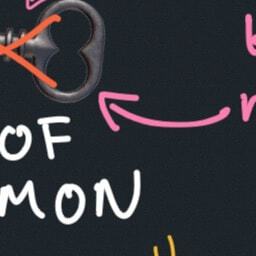 OF
MON